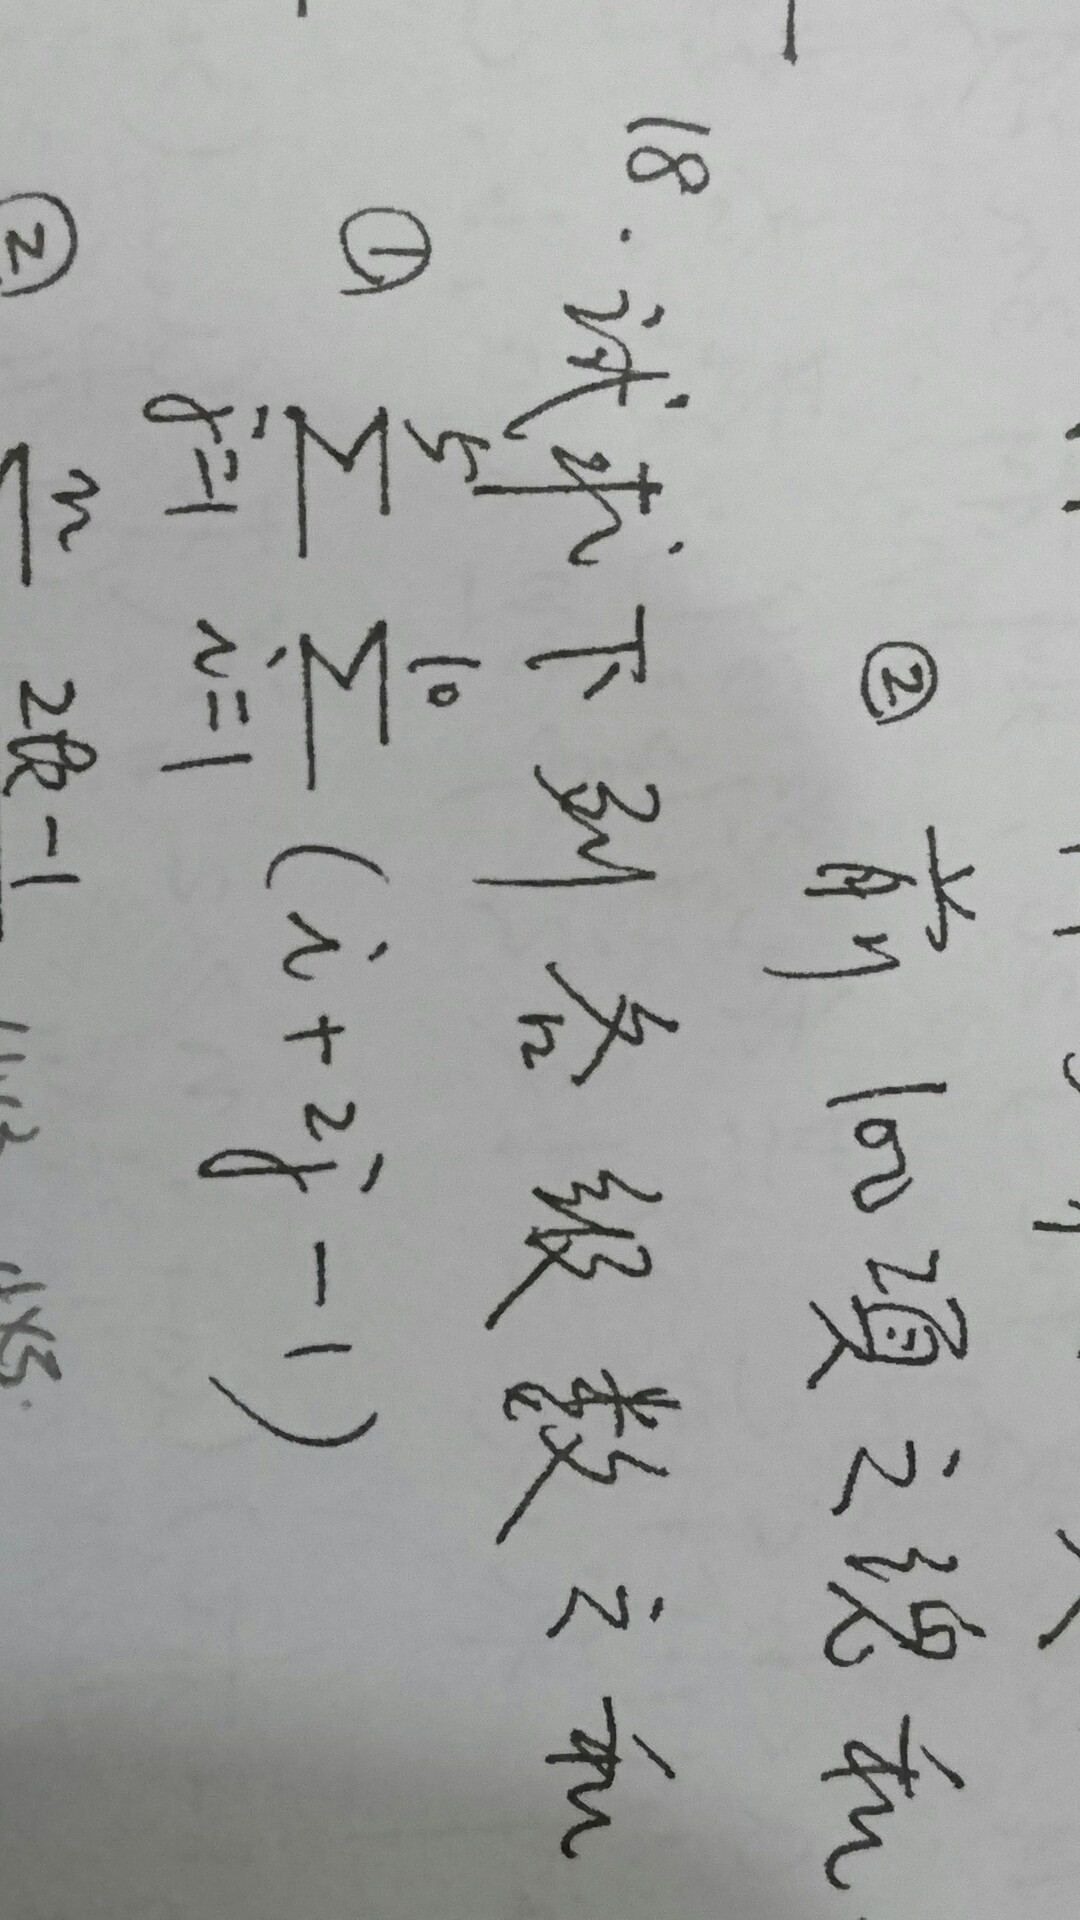 ② 前100項之總和
18. 試求下列各級數之和
① 5 10
Σ Σ (i+2j-1)
j=1 i=1
② n
2k-1